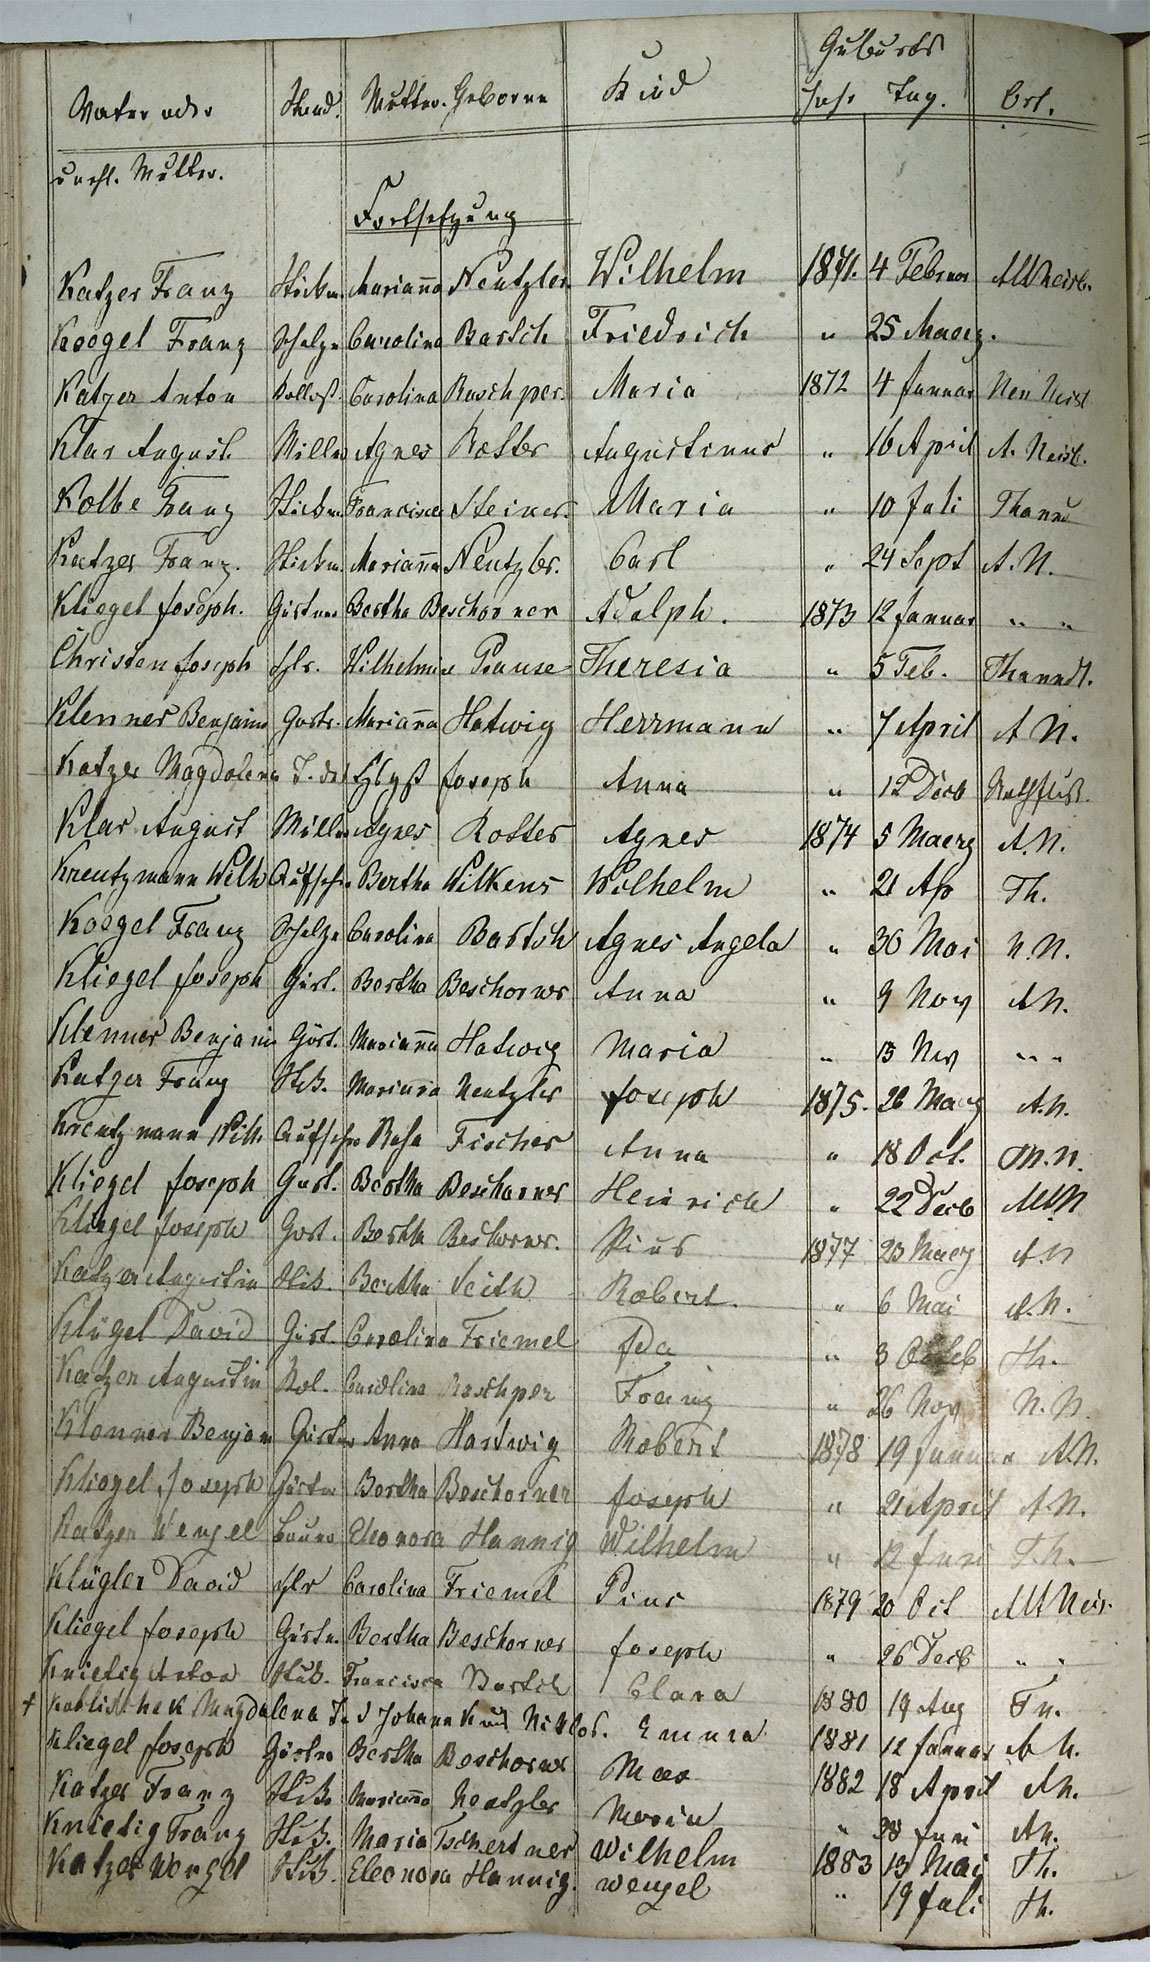 Geburts
Vater oder Stand. Mutter. Geborene Kind Jahr Tag. Ort.
unehl. Mutter.
Fortsetzung
Katzer Franz Stübn. Marianna Neutzler Wilhelm 1871. 4 Februar Alt Neisb.
Koegel Franz Scholze Carolina Bartsch Friedrich " 25 Maerz.
Katzer Anton Carolina Raschper. Maria 1872 4 Januar Neu Neist
Klar August Müller Agnes Koster Augustinus " 16 April A. Neisb.
Kolbe Franz Stübn. Francisca Steiner. Maria " 10 Juli
Katzer Franz. Stübn. Marianna Neutzler. Carl " 24 Sept A. N.
Kliegel Joseph. Gärtner Bertha Beschorner Adolph. 1873 12 Januar " "
Christen Joseph Hlr. Wilhelmine Prause Theresia " 5 Feb. Thanndt.
Klenner Benjamin Gärtr. Marianna Hatwig Herrmann " 7 April A N.
Katzer Magdalena T. des Joseph Anna " 12 Decb
Klar August Müller Agnes Koster Agnes 1874 5 Maerz A. N.
Kreutzmann Wilh Aufseher Bertha Wilkens Wilhelm " 21 Ap Th.
Koegel Franz Scholze Carolina Bartsch Agnes Angela " 30 Mai N. N.
Kliegel Joseph Gärt. Bertha Beschorner Anna " 9 Nov A N.
Klenner Benjamin Gärt. Marianna Hatwig Maria " 13 Nov " "
Katzer Franz Stüb. Mariana Neutzler Joseph 1875. 26 Maerz A. N.
Kreutzmann Wilh. Aufseher Rosa Fischer Anna " 18 Oct.
Kliegel Joseph Gärt. Bertha Beschorner Heinrich " 22 Decb Alt N
Kliegel Joseph Gärt. Bertha Beschorner. Pius 1877 23 Maerz A. N
Katzer Augustin Stüb. Bertha Veith Robert. " 6 Mai A. N.
Klügel David Gärt. Carolina Friemel Ida " 3 Octob Th.
Katzer Augustin Kol. Carolina Raschper Franz " 26 Nov N. N.
Klenner Benjam Gärtner Anna Hartwig Robert 1878 19 Januar A N.
Kliegel Joseph Gärtner Bertha Beschorner Joseph " 21 April A N.
Katzer Wenzel Bauer Eleonora Hannig Wilhelm " 12 Juni Th.
Klügler David Hlr Carolina Friemel Pius 1879 20 Oct Alt Neis.
Kliegel Joseph Gärtn. Bertha Beschorner Joseph " 26 Decb " "
Knietig Anton Stüb. Francisca Bartsch Clara 1880 19 Aug Th.
+ Koblischek Magdalena T. d Johann Emma 1881 12 Januar A N.
Kliegel Joseph Gärtner Bertha Beschorner Max 1882 18 April A N.
Katzer Franz Stüb. Marianna Neutzler Maria " Juni A N.
Knietig Franz Stüb. Maria Tschertner Wilhelm 1883 13 Mai Th.
Katzer Wenzel Stüb. Eleonora Hannig. Wenzel " 19 Juli Th.